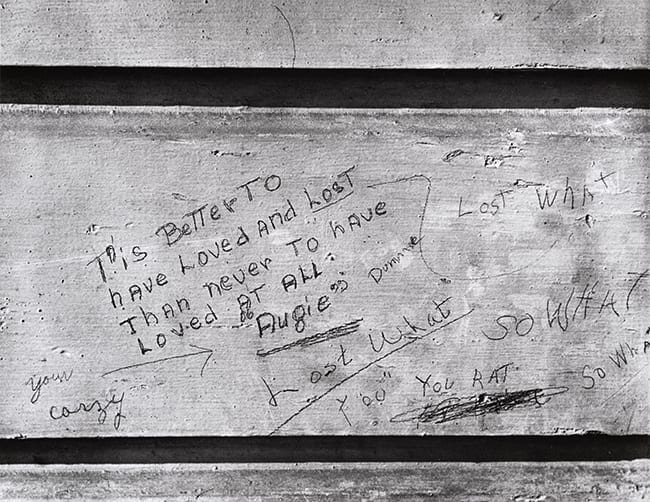 T'is BeTTer To
have Loved And LosT
Than never To have
Loved AT ALL.
Augie
Lost What
Lost What
So WHAT
You YOU RAT
So Wha
your
carzy